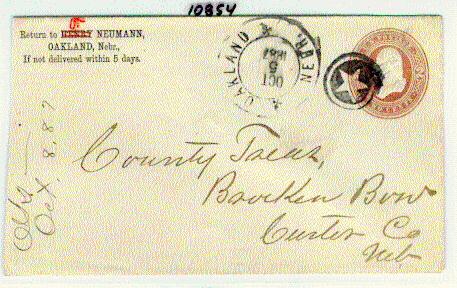 10854
Return to HENRY NEUMANN,
OAKLAND, Nebr.,
If not delivered within 5 days.
OAKLAND NEBR.
OCT
5
1887
County Treas,
Brocken Bow
Custer Co
Neb
Oct. 8. 87